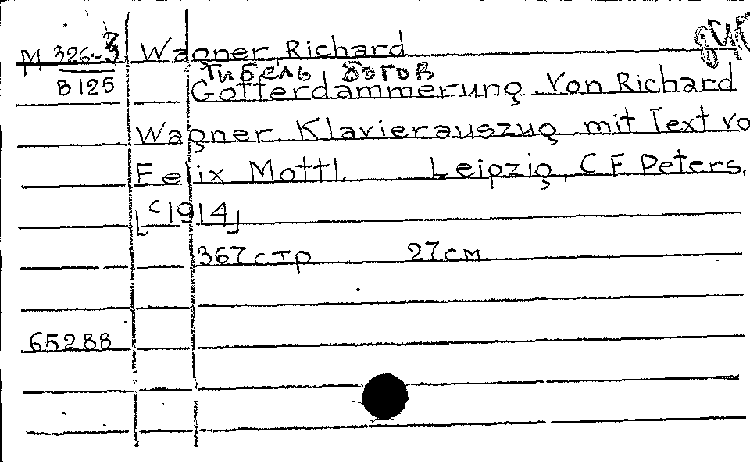 M 326-3 Wagner, Richard
Гибель богов
B 125 Götterdämmerung. Von Richard
Wagner. Klavierauszug mit Text vo
Felix Mottl. Leipzig, C. F. Peters,
[c1914]
367 стр 27 см
65288